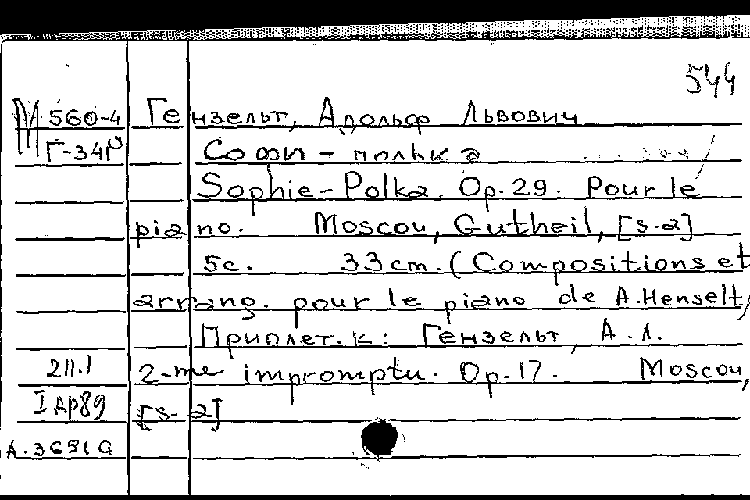 544
М 560-4 Гензельт, Адольф Львович
Г-34Р Софи - полька
Sophie-Polka. Op. 29. Pour le
piano. Moscou, Gutheil, [s.a]
5c. 33cm. (Compositions et
arrang. pour le piano de A. Henselt)
Приплет. к: Гензельт, А. Л.
2П.1 2-me impromptu. Op. 17. Moscou,
I др89 [s. a]
А.3691